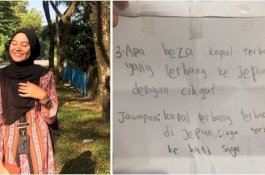 3. Apa beza kapal terbang
yang terbang ke Jepun
dengan cikgu?
Jawapan: kapal terbang terbang
di jepun. Cikgu terbang
ke hati saya